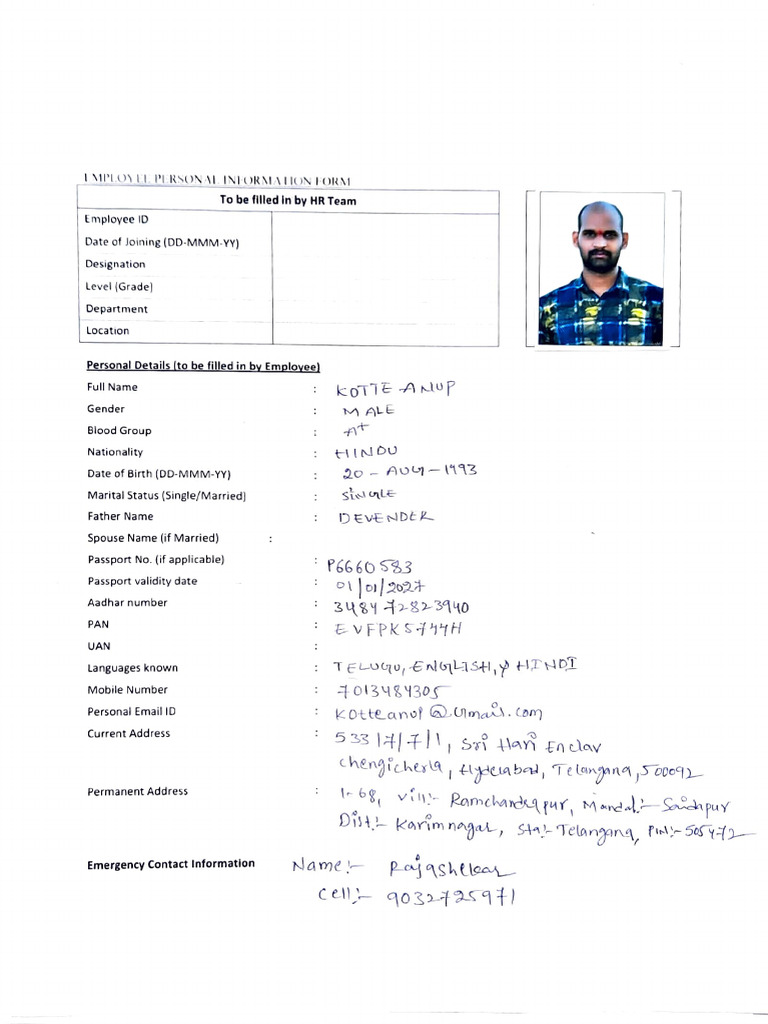 EMPLOYEE PERSONAL INFORMATION FORM
To be filled in by HR Team
Employee ID
Date of Joining (DD-MMM-YY)
Designation
Level (Grade)
Department
Location
Personal Details (to be filled in by Employee)
Full Name : KOTTE ANUP
Gender : MALE
Blood Group : A+
Nationality : HINDU
Date of Birth (DD-MMM-YY) : 20-AUG-1993
Marital Status (Single/Married) : SINGLE
Father Name : DEVENDER
Spouse Name (if Married) :
Passport No. (if applicable) : P6660583
Passport validity date : 01/01/2027
Aadhar number : 3484 72823940
PAN : EVFPK5744H
UAN :
Languages known : TELUGU, ENGLISH, HINDI
Mobile Number : 7013484305
Personal Email ID : kotteanup@gmail.com
Current Address : 533/7/7/1, Sri Hari Enclav
chengicherla, Hyderabad, Telangana, 500092
Permanent Address : 1-68, Vill:- Ramchandrapur, Mandal:- Saidapur
Dist:- Karimnagar, Sta:- Telangana, PIN:- 505472
Emergency Contact Information Name:- Rajashekar
Cell:- 9032725971